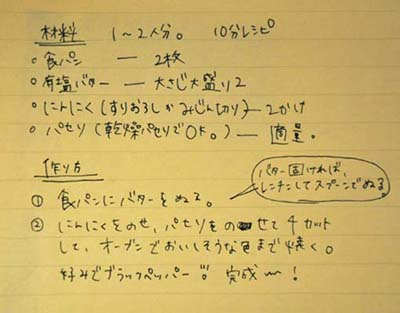 材料 1〜2人分。 10分レシピ
○食パン — 2枚
○有塩バター — 大さじ大盛り2
○にんにく(すりおろしかみじん切り) — 2かけ
○パセリ(乾燥パセリでOK。) — 適量。
作り方
バター固ければ、
レンチンしてスプーンでぬる。
① 食パンにバターをぬる。
② にんにくをのせ、パセリをのせて4カット
して、オーブンでおいしそうな色まで焼く。
好みでブラックペッパーを。 完成〜!